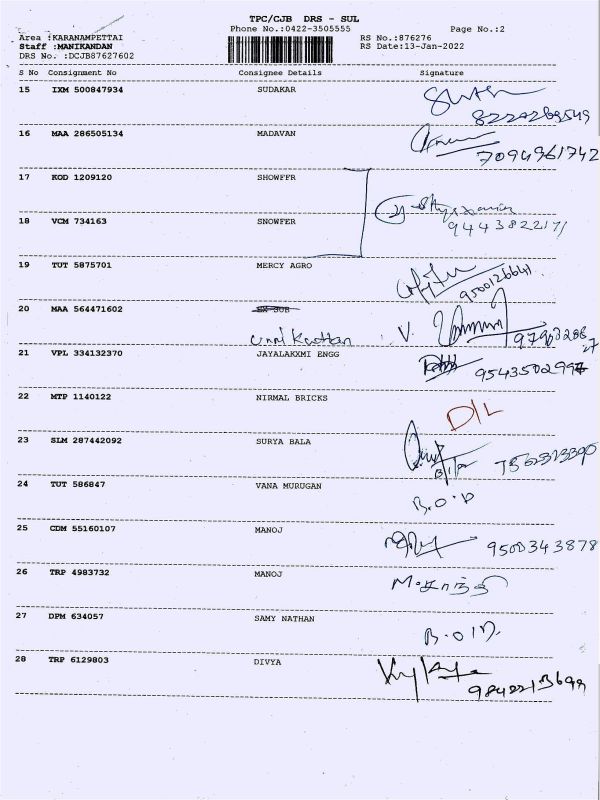 TPC/CJB DRS - SUL
Phone No.:0422-3505555 Page No.:2
Area :KARANAMPETTAI RS No.:876276
Staff :MANIKANDAN RS Date:13-Jan-2022
DRS No. :DCJB87627602
S No Consignment No Consignee Details Signature
15 IXM 500847934 SUDAKAR
16 MAA 286505134 MADAVAN
7094961742
17 KOD 1209120 SHOWFFR
18 VCM 734163 SNOWFER
9443822171
19 TUT 5875701 MERCY AGRO
9500126641
20 MAA 564471602
V.
21 VPL 334132370 JAYALAKXMI ENGG
22 MTP 1140122 NIRMAL BRICKS
D/L
23 SLM 287442092 SURYA BALA
24 TUT 586847 VANA MURUGAN
B.O.D
25 CDM 55160107 MANOJ
9500343878
26 TRP 4983732 MANOJ
27 DPM 634057 SAMY NATHAN
28 TRP 6129803 DIVYA